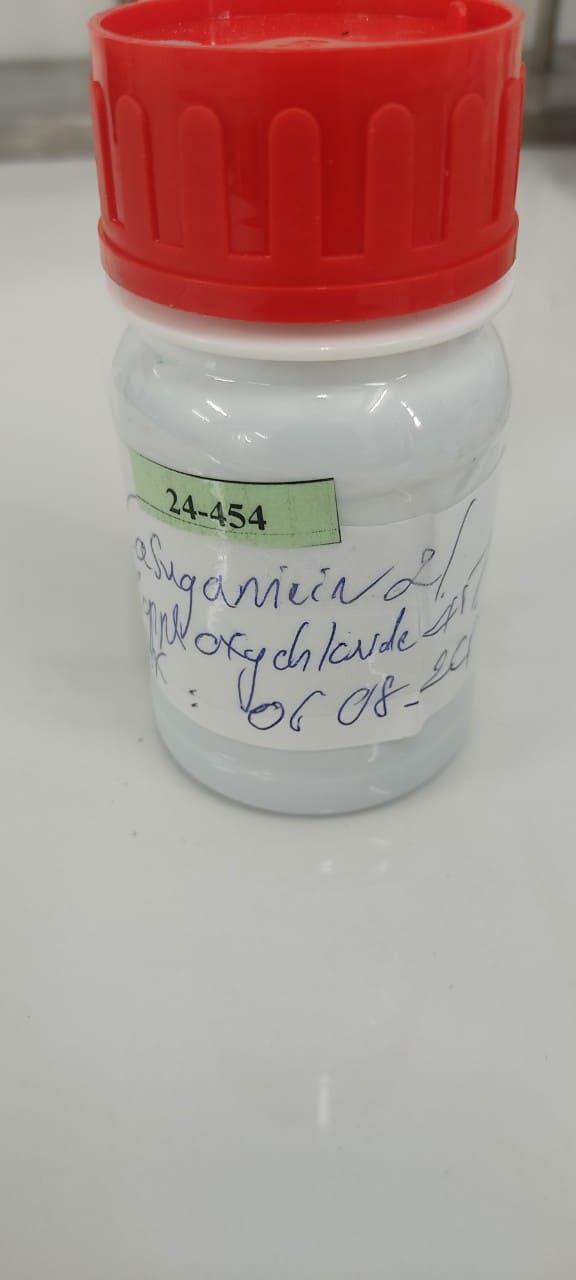 24-454
asugamicin 2/
oxychloride
: 06 08-20